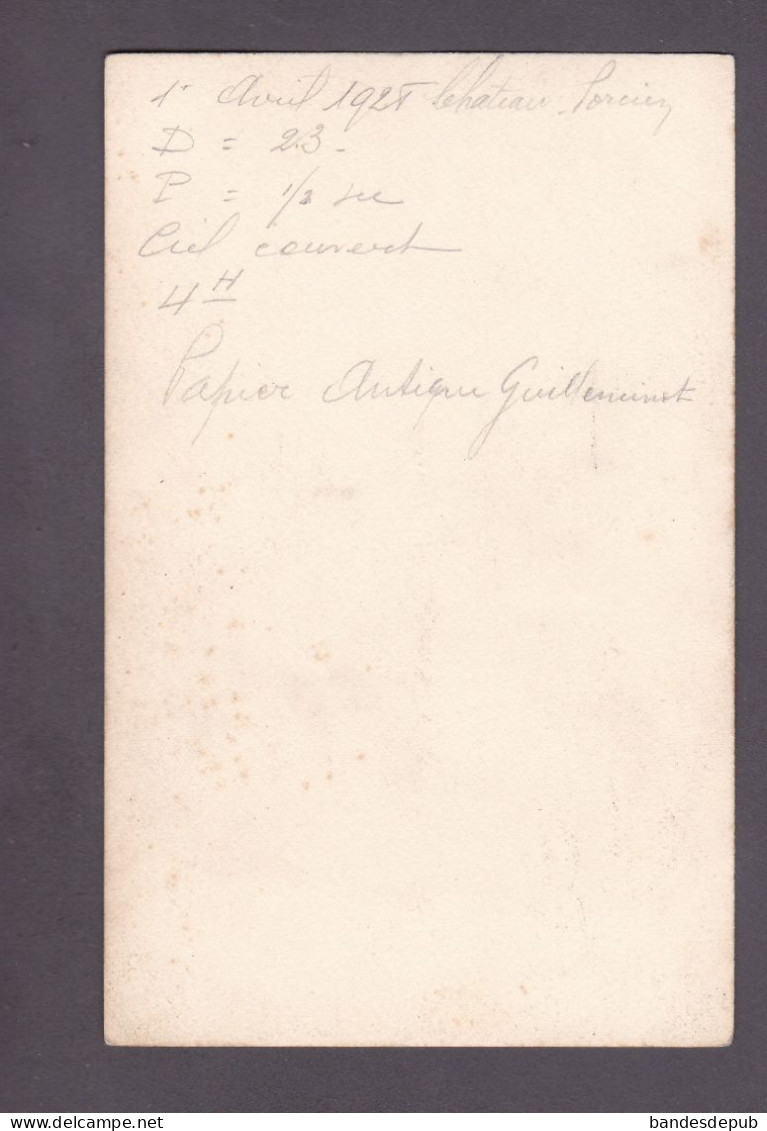 1r Avril 192 Chateau Porcien
D = 23 -
P = 1/2 sec
Ciel couvert
4H
Papier Antique Guilleminot
Delcampe.net
bandesdepub